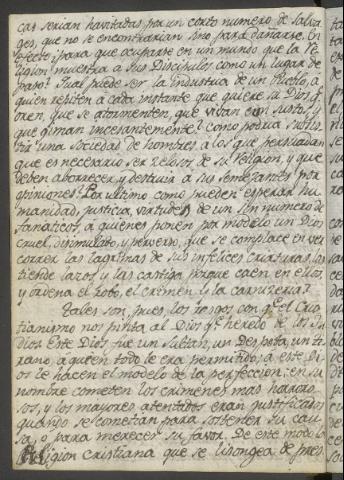 cas serian havitadas por un corto numero de salva
ges, que no se encontrarian sino para dañarse. En
efecto ¿para que ocuparse en un mundo que la Re
ligion muestra a sus Discipulos como un lugar de
paso? Qual puede ser la industria de un Pueblo, a
quien repiten a cada instante que quiere su Dios q.e
oren, que se atormenten, que vivan con sustos, y
que giman incesantemente? como podria subsis
tir una Sociedad de hombres a los que persuadan
que es neccesario ser zelosos de su Religion, y que
deben aborrecer, y destruir a sus semejantes por
opiniones? Por ultimo como pueden esperar hu
manidad, justicia, virtudes de un sin numero de
fanaticos, a quienes ponen por modelo un Dios
cruel, disimulado, y perverso, que se complace en ver
correr las lagrimas de sus infelices criaturas, les
tiende lazos, y las castiga porque caen en ellos,
y ordena el robo, el crimen y la carniceria?
Tales son, pues, los rasgos con q.e el Cris
tianismo nos pinta al Dios q.e heredo de los Ju
dios. Este Dios fue un Sultan, un Despota, un ti
rano, a quien todo le era permitido; a este Di
os le hacen el modelo de la perfeccion: en su
nombre cometen los crimenes mas horroro
sos, y los mayores atentados eran justificados
quando se cometan para sostener su cau
sa, o para merecer su favor. De este modo la
Religion Cristiana que se lisongea de pres